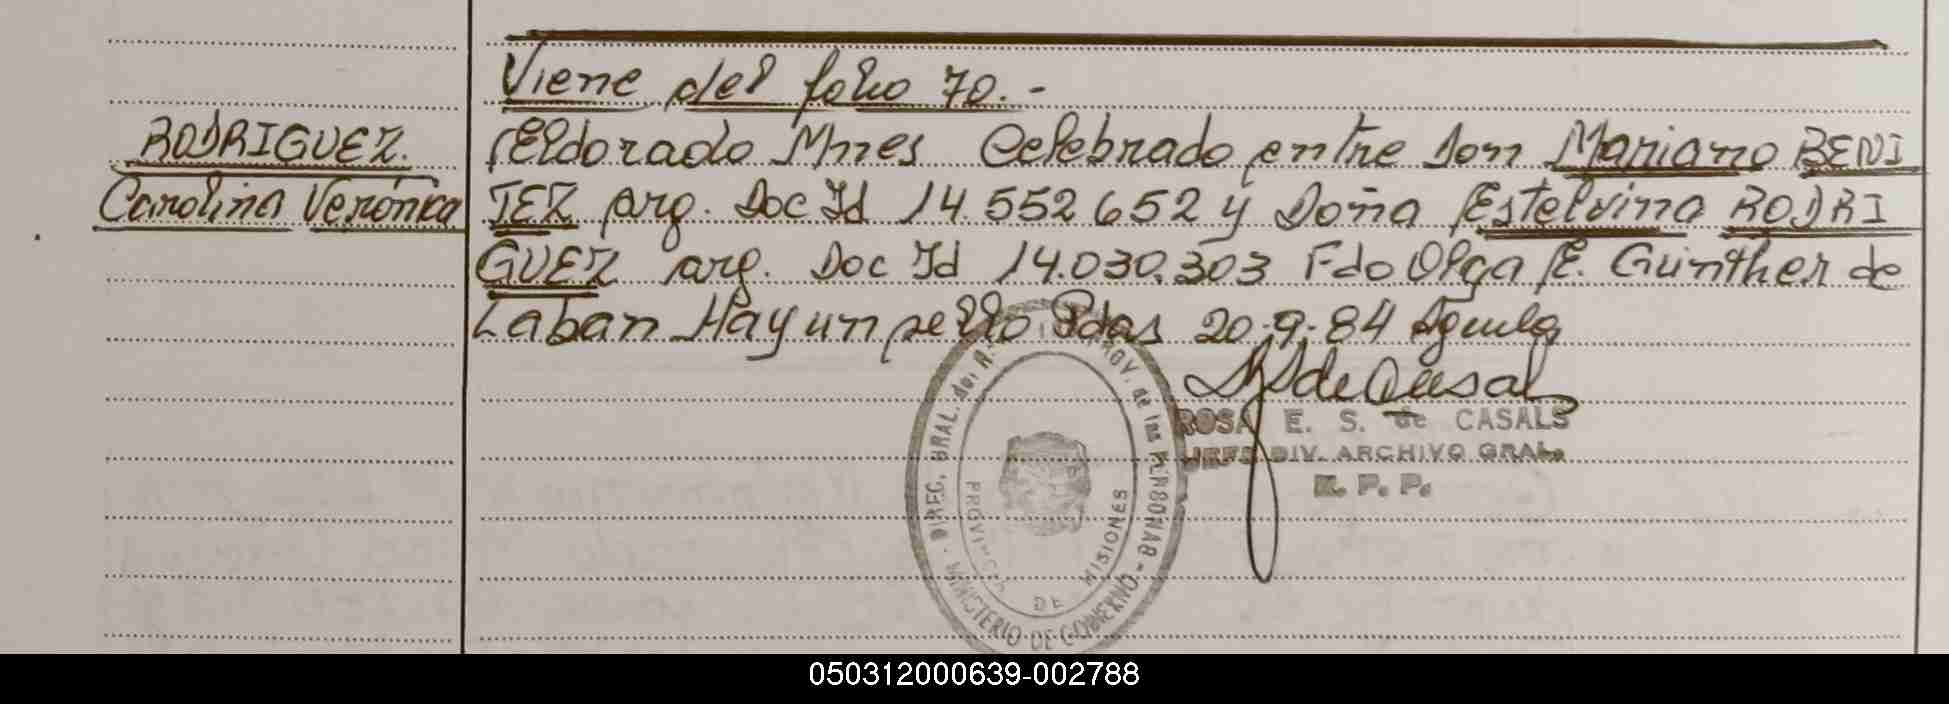 Viene del folio 70.-
RODRIGUEZ.
Carolina Verónica
Eldorado Mnes Celebrado entre Don Mariano BENI
TEZ arg. Doc Id 14.552652 y Doña Estelvina RODRI
GUEZ arg. Doc Id 14.030.303 Fdo Olga E. Günther de
Laban Hay un sello Pdas 20-9-84 Aguila
ROSA E. S. de CASALS
JEFE DIV. ARCHIVO GRAL.
R. P. P.
DIREC. GRAL. del R. PROV. de las PERSONAS - MINISTERIO DE GOBIERNO -
PROVINCIA DE MISIONES
050312000639-002788